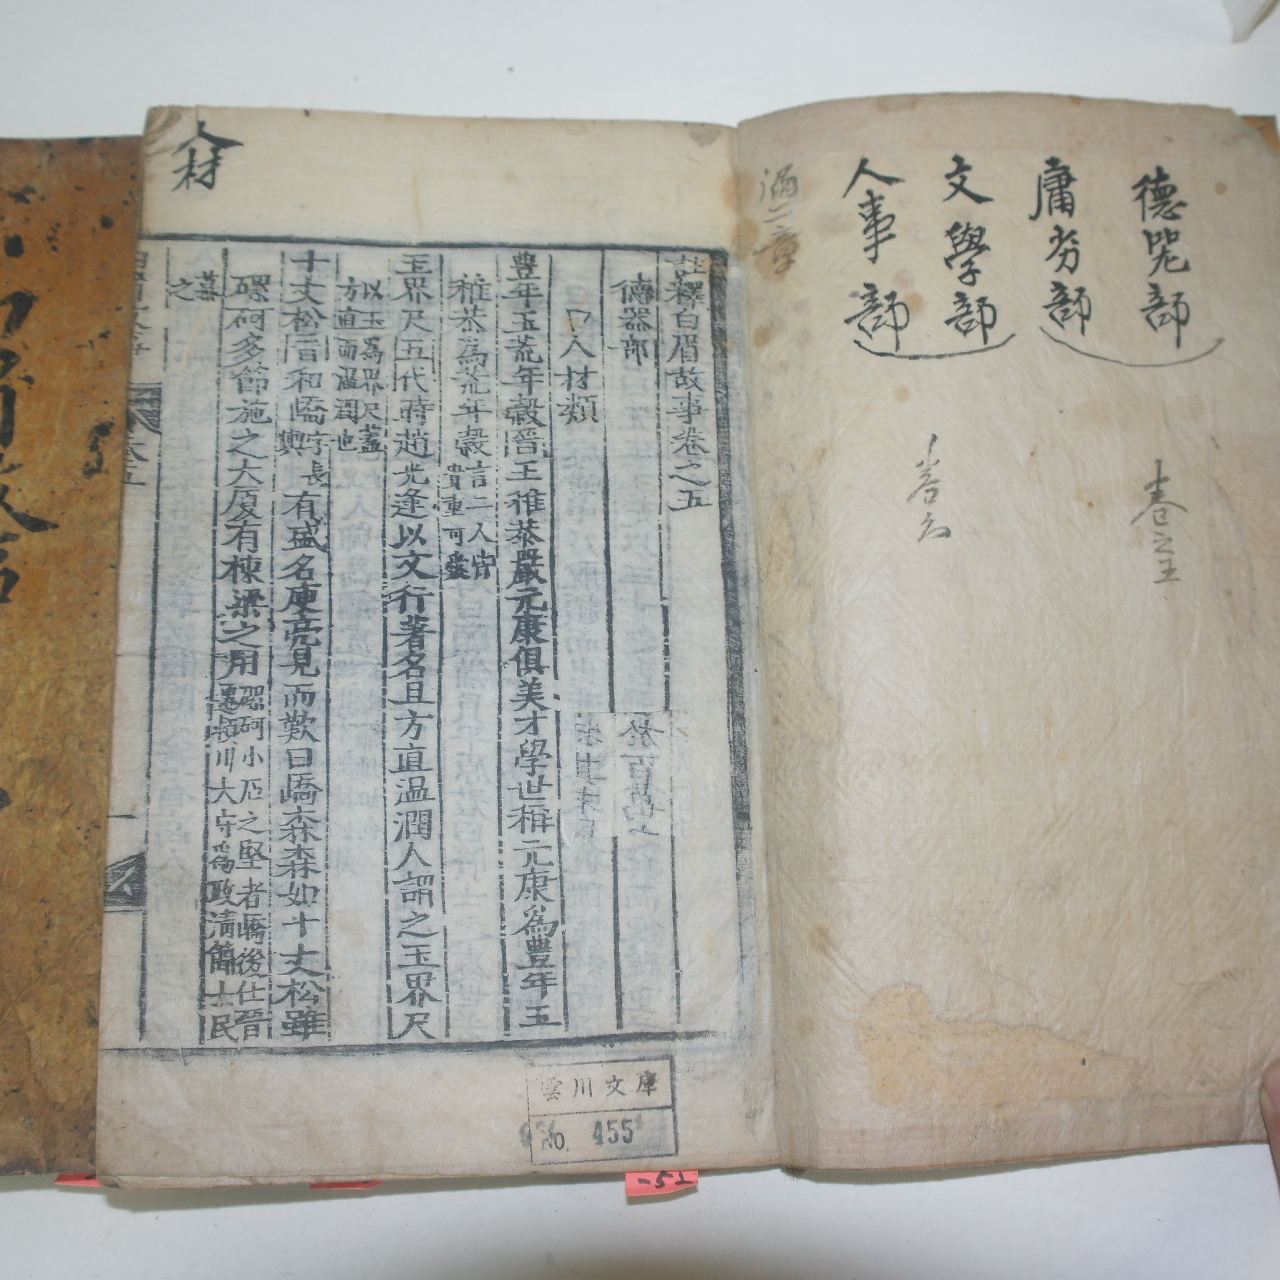 德器部
庸劣部
文學部
人事部
卷之五
卷六
人材
註釋白眉故事卷之五
德器部
人材類
豊年玉荒年穀晉王稚恭嚴元康俱美才學世稱元康爲豊年玉
稚恭爲荒年穀言二人皆貴重可愛
玉界尺五代時趙光逢以文行著名且方直溫潤人謂之玉界尺
以玉爲界尺蓋方直而溫潤也
十丈松晋和嶠字長輿有盛名庾亮見而歎曰嶠森森如十丈松雖
磥砢多節施之大厦有棟梁之用磥砢小石之堅者嶠後仕晉遷潁川大守爲政淸簡士民
慕之
雲川文庫
No. 455
-52